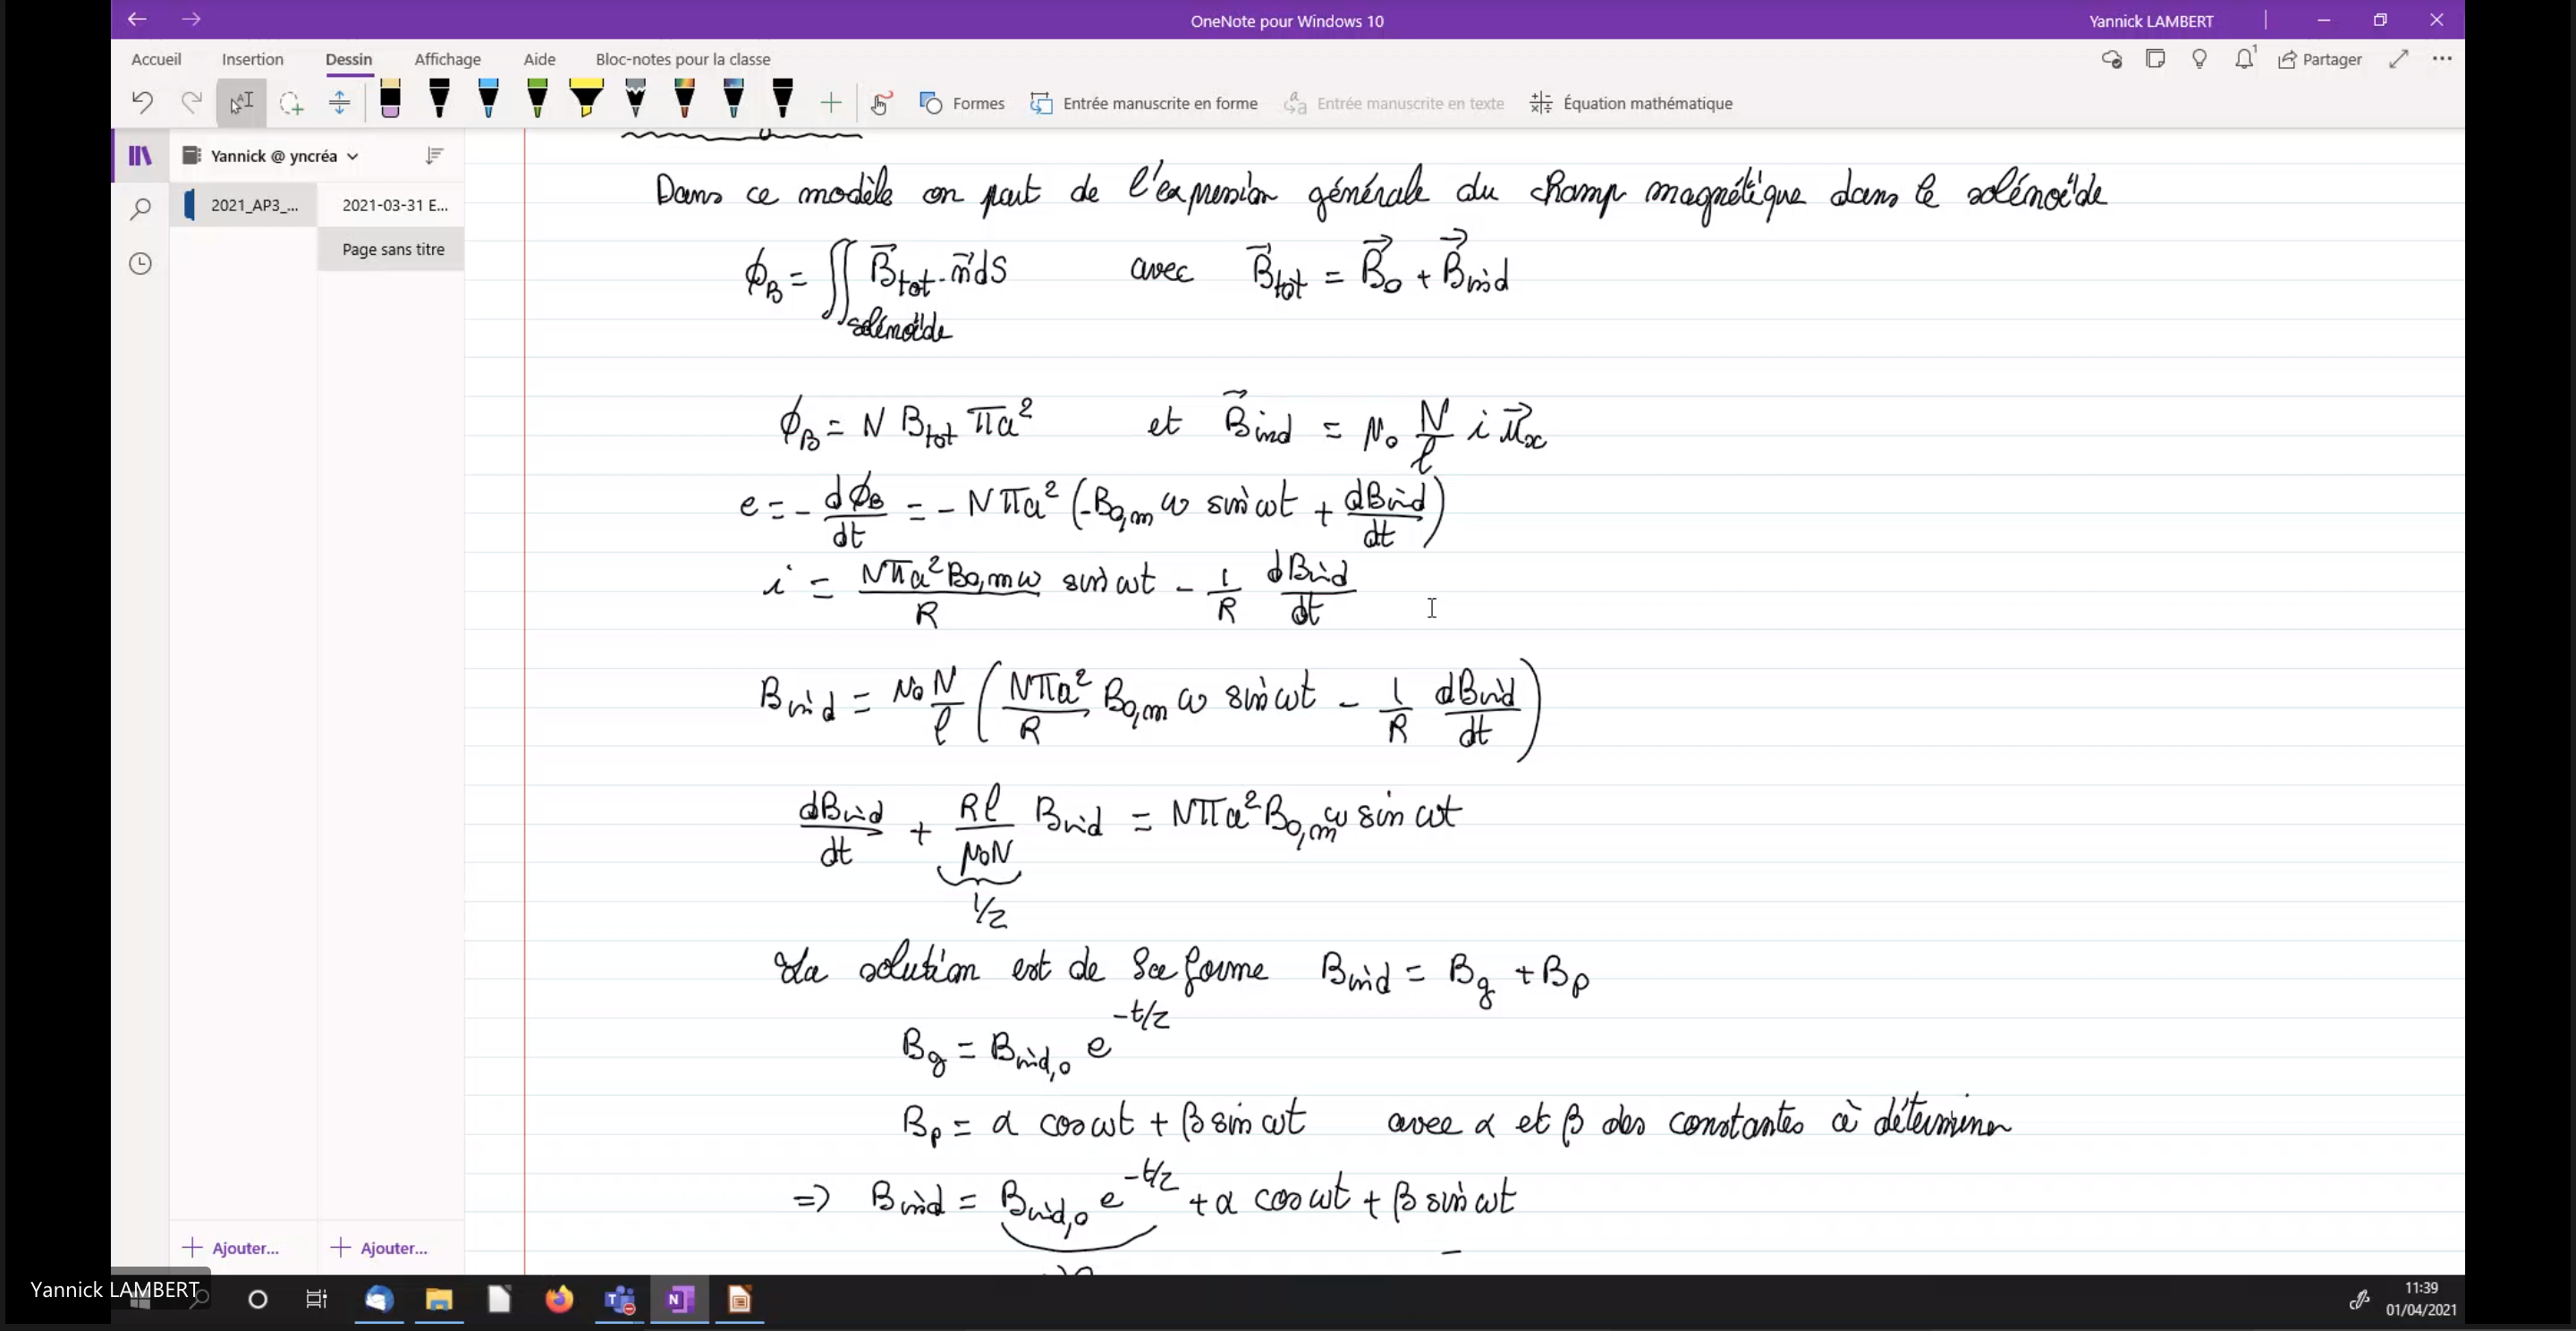 OneNote pour Windows 10
Yannick LAMBERT
Accueil Insertion Dessin Affichage Aide Bloc-notes pour la classe
Partager
Formes Entrée manuscrite en forme Entrée manuscrite en texte Équation mathématique
Yannick @ yncréa
2021_AP3_...
2021-03-31 E...
Page sans titre
Dans ce modèle on part de l'expression générale du champ magnétique dans le solénoïde
ϕ_B = ∬_solénoïde B⃗_tot · n⃗ dS avec B⃗_tot = B⃗_0 + B⃗_ind
ϕ_B = N B_tot πa² et B⃗_ind = μ₀ N/ℓ i u⃗_x
e = - dϕ_B/dt = - Nπa² (-B_0,m ω sin ωt + dB_ind/dt)
i = Nπa²B_0,m ω/R sin ωt - 1/R dB_ind/dt
B_ind = μ₀N/ℓ (Nπa²/R B_0,m ω sin ωt - 1/R dB_ind/dt)
dB_ind/dt + Rℓ/μ₀N B_ind = Nπa²B_0,m ω sin ωt
1/τ
La solution est de la forme B_ind = B_g + B_p
B_g = B_ind,0 e^(-t/τ)
B_p = α cos ωt + β sin ωt avec α et β des constantes à déterminer
=> B_ind = B_ind,0 e^(-t/τ) + α cos ωt + β sin ωt
Ajouter... Ajouter...
Yannick LAMBERT
11:39
01/04/2021